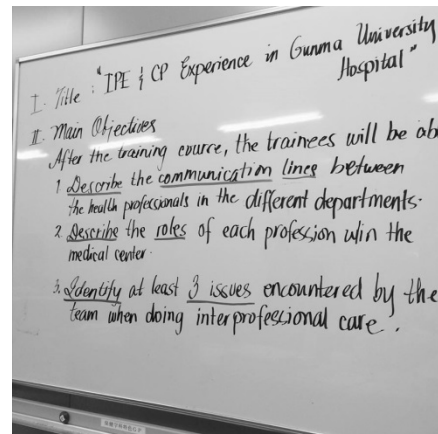 I. Title : "IPE & CP Experience in Gunma University
Hospital"
II. Main Objectives
After the training course, the trainees will be ab
1. Describe the communication lines between
the health professionals in the different departments.
2. Describe the roles of each profession w/in the
medical center.
3. Identify at least 3 issues encountered by the
team when doing interprofessional care.